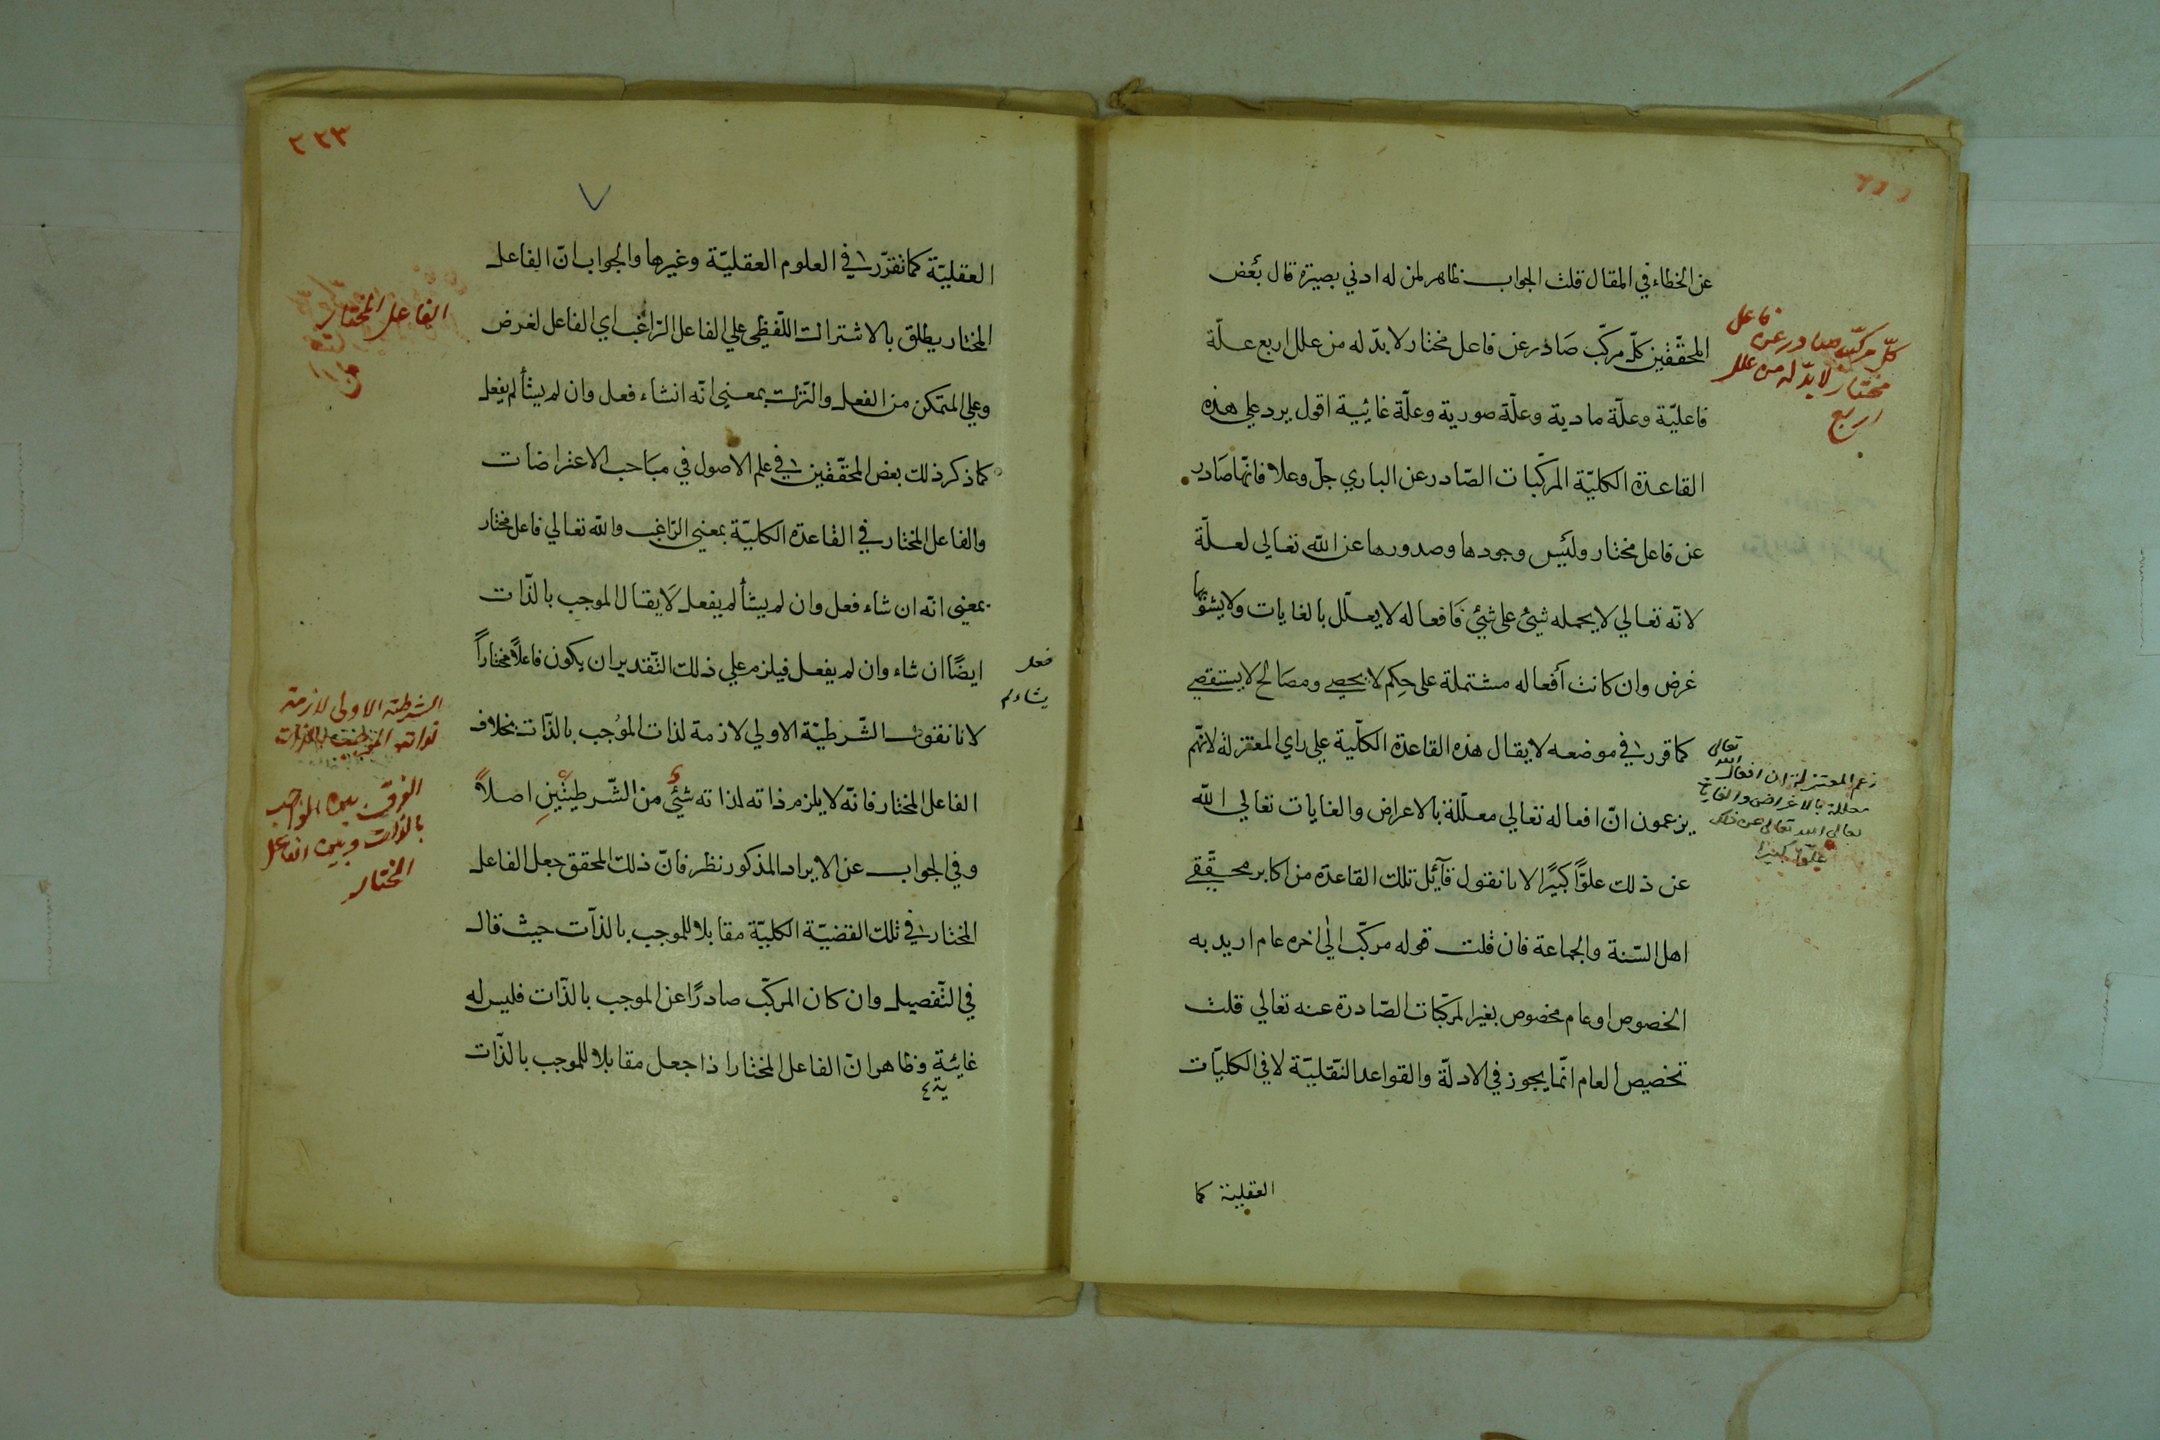 عن الخطاء في المقال قلت الجواب ظاهر لمن له ادني بصيرة قال بعض
المحقّقين كلّ مركّب صَادر عن فاعل مختار لا بدّ له من علل اربع علّة
فاعليّة وعلّة مادية وعلّة صورية وعلّة غائيية اقول يرد علي هذه
القاعدة الكليّة المركّبات الصّادر عن الباري جلّ وعلا فانّها صَادر
عن فاعل مختار وليَس وجودها وصدورها عن الله تعالي لعلّة
لانّه تعالي لا يحمله شيئ علي شيئ فافعاله لا يعلّل بالغايات ولا يشوّبها
غرض وان كانت أفعاله مشتملة علي حِكم لا يحصي ومصَالح لا يستقصي
كما قرر في موضعه لا يقال هذه القاعدة الكلّية علي راي المعتزلة لانّهم
يزعمون انّ افعاله تعالي معلّلة بالاعراض والغايات تعالي الله
عن ذلك علوًّا كبيرًا لانا نقول قآئل تلك القاعدة من اكابر محقّقي
اهل السّنة والجماعة فان قلت قوله مركّب الي اخره عام اريد به
الخصوص او عام مخصوص بغير المركّبات الصّادرة عنه تعالي قلت
تخصيص العام انّما يجوز في الادلّة والقواعد النّقليّة لا في الكليّات
العقلية كما
كلّ مركّب صادر عن فاعل
مختار لا بدّ له من علل
اربع
زعم المعتزلة ان افعال الله تعالى
معللة بالاغراض والغايات
تعالى الله تعالى عن ذلك
علوّا كبيرا
٢٢٣
العقليّة كما تقرّر في العلوم العقليّة وغيرها والجواب انّ الفاعل
المختار يطلق بالاشتراك اللّفظي علي الفاعل الرّاغب اي الفاعل لغرض
وعلي المتمكن من الفعل والتّرك بمعني انّه انشاء فعل وان لم يشأ لم يفعل
كما ذكر ذلك بعض المحقّقين في علم الاصول في مبَاحب الاعتراضات
والفاعل المختار في القاعدة الكليّة بمعني الرّاغب والله تعالي فاعل مختار
بمعني انّه ان شاء فعل وان لم يشأ لم يفعل لا يقال الموجب بالذّات
ايضًا ان شاء وان لم يفعل فيلزم علي ذلك التّقدير ان يكون فاعلاً مختاراً
لانا نقول الشّرطيّة الاولي لازمة لذات الموُجب بالذّات بخلاف
الفاعل المختار فانّه لا يلزم ذاته لذاته شيئ من الشّرطيتَينِ اصلاً
وفي الجواب عن الايراد المذكور نظر فانّ ذلك المحقق جعل الفاعل
المختار في تلك القضيّة الكليّة مقابلا للموجب بالذآت حيث قال
في التّفصيل وان كان المركّب صادرًا عن الموجب بالذّات فليس له
غايئة وظاهر انّ الفاعل المختار اذا جعل مقابلا للموجب بالذّات
ية
فعل
يشاء لم
الفاعل المختار
الشرطيّة الاولى لازمة
لذات الموجب بالذات
الفرق بين الموجب
بالذّات وبين الفاعل
المختار